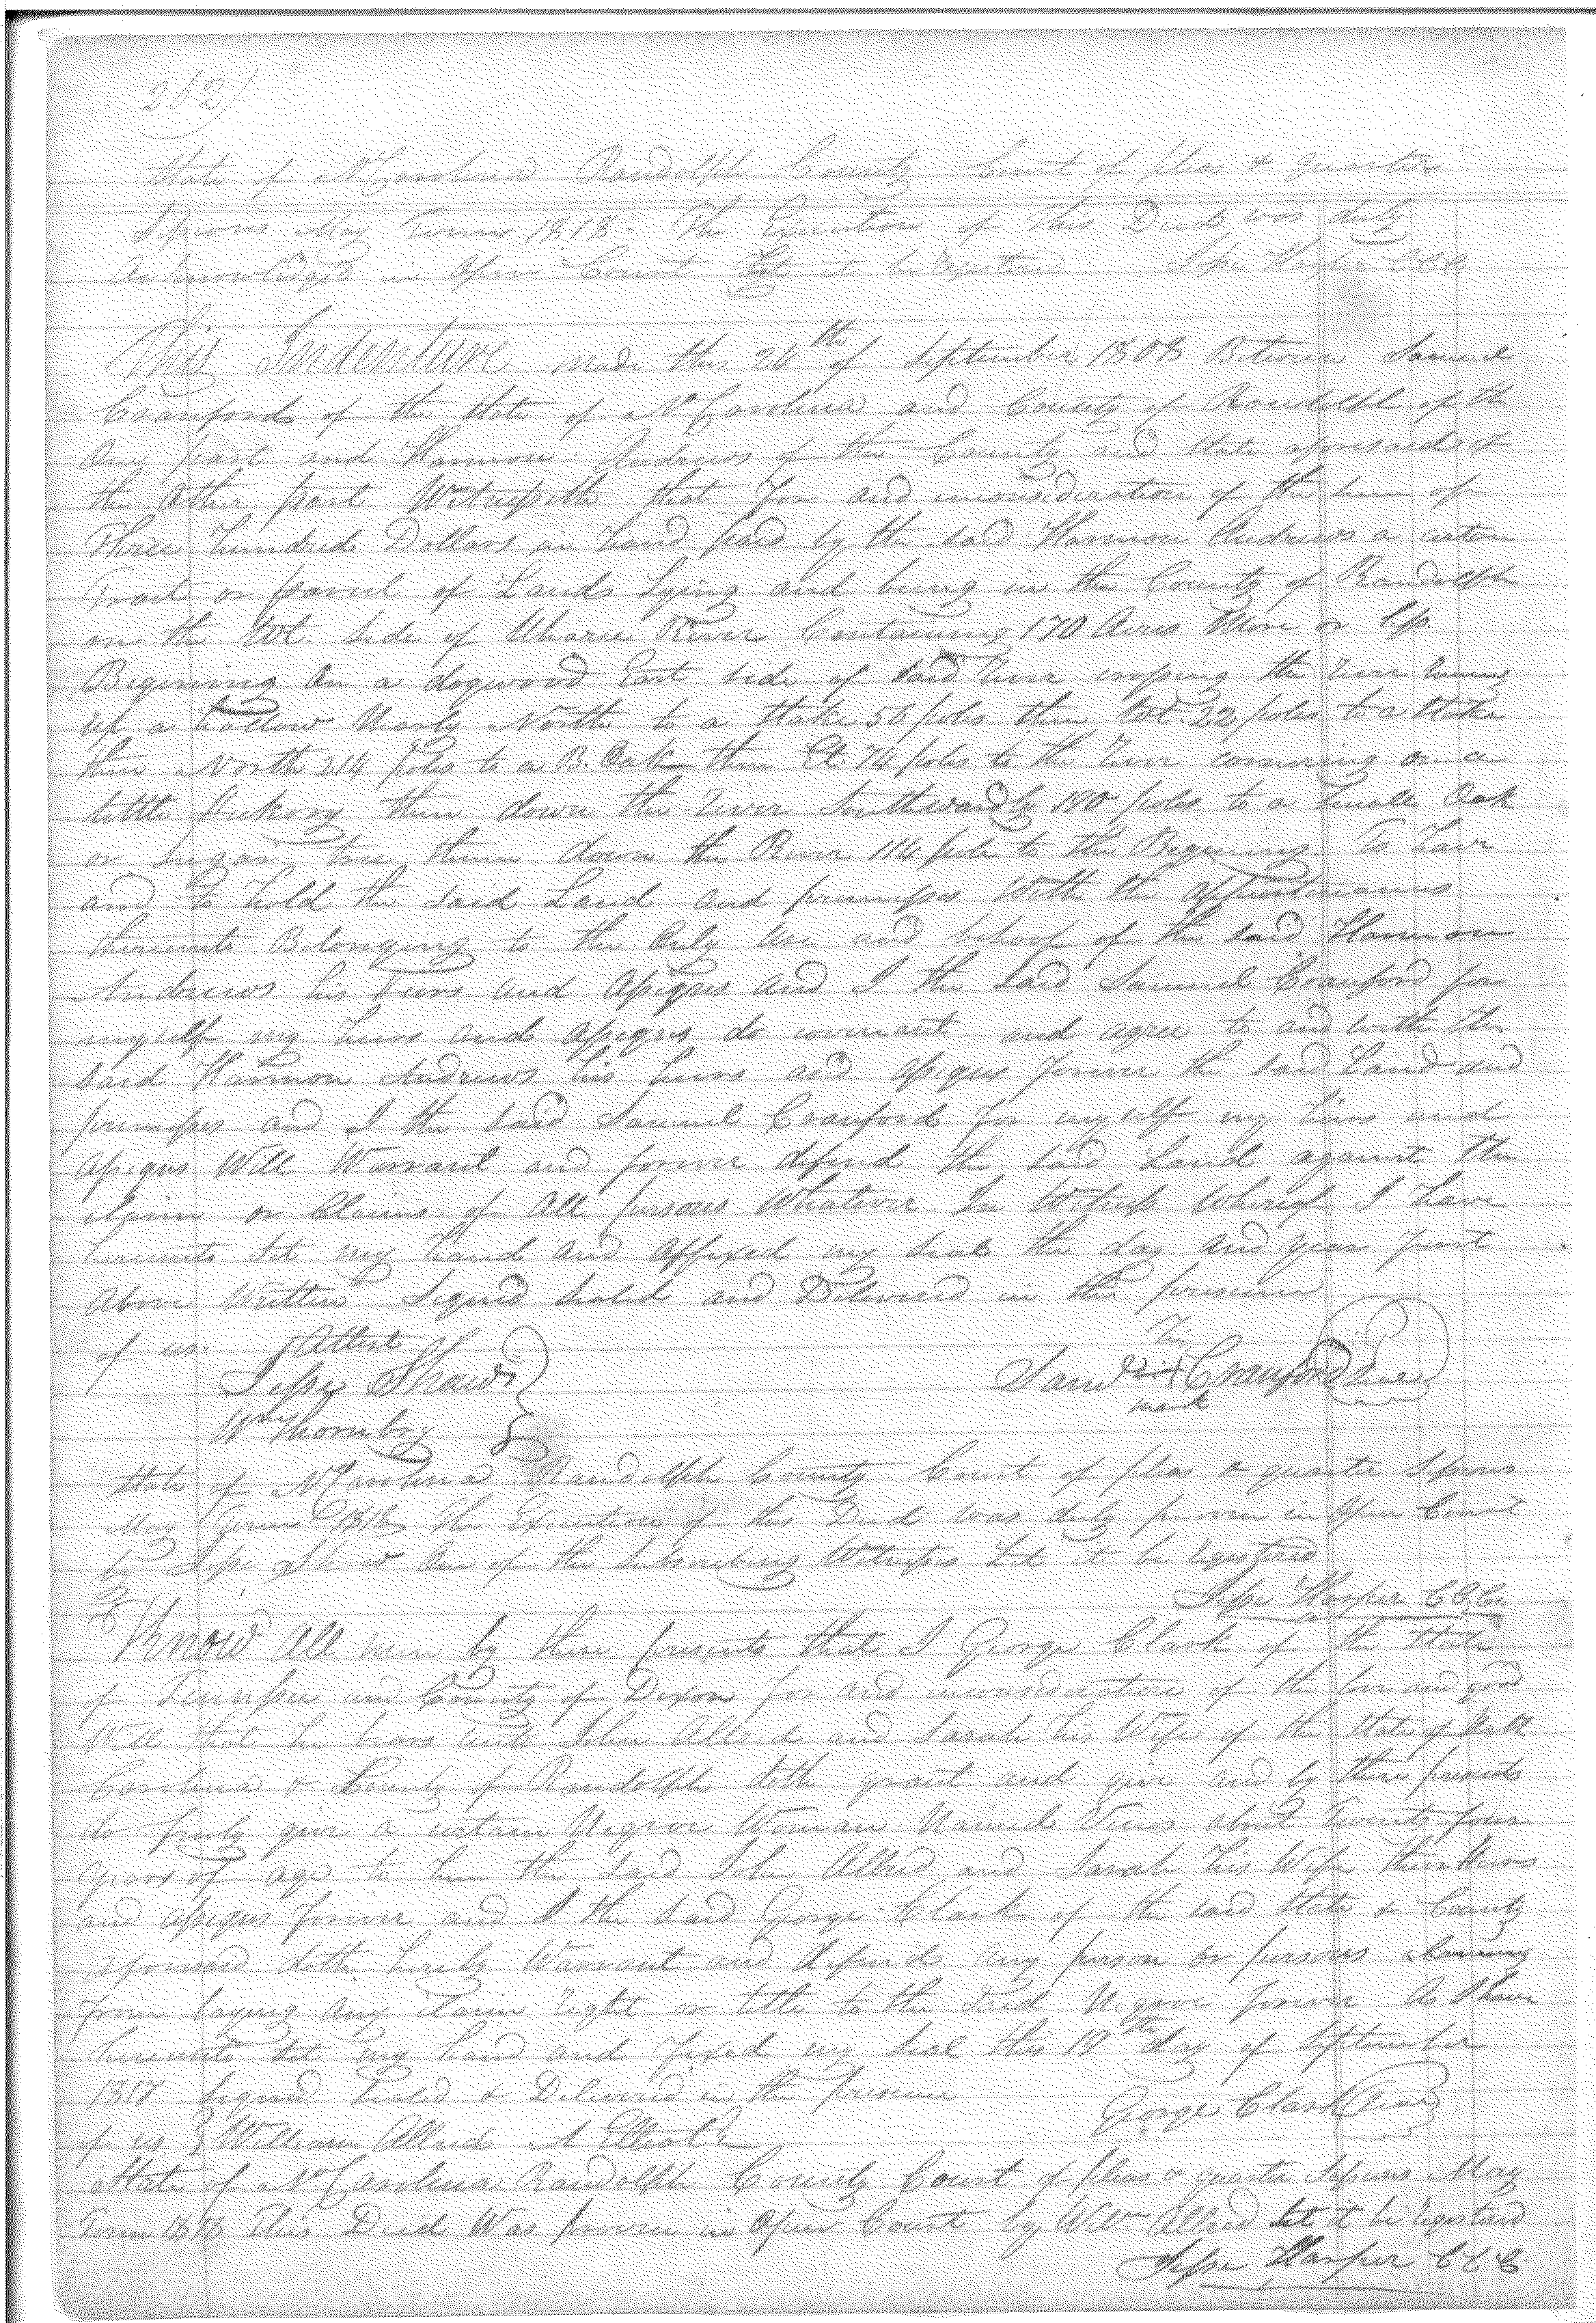 252
State of N Carolina Randolph County Court of pleas & quarter
Sessions May Term 1818. The Execution of this Deed was duly
Acknowledged in Open Court Let it be Registered Jesse Harper CCC
This Indenture made this 24th of September 1808 Between Samuel
Cranford of the State of No Carolina and County of Randolph of the
One part and Harmon Andrews of the County and State aforesaid of
the Other part Witnesseth that for and inconsideration of the sum of
Three hundred Dollars in hand paid by the said Harmon Andrews a certain
Tract or parcel of Lands Lying and being in the County of Randolph
on the Wt. side of Uharie River Containing 170 Acres More or less
Begining On a dogwood East side of said River crossing the river runing
up a hollow Nearly North to a Stake 56 poles then Wt. 22 poles to a Stake
then North 214 Poles to a B. Oak then Et. 74 poles to the River cornering on a
little Hickory then down the River Southwardly 180 poles to a Small Oak
or sugar tree thence down the River 114 pole to the Begining. To Have
and to hold the said Land and premises With the appurtinances
thereunto Belonging to the Only Use and behoof of the said Harmon
Andrews his Heirs and assigns and I the said Samuel Cranford for
myself my heirs and assigns do covenant and agree to and with the
said Harmon Andrews his heirs and assigns forever the said Land and
premises and I the said Samuel Cranford for myself my heirs and
assigns Will Warrant and forever defend the said Land against the
claim or Claims of All persons Whatever. In Witness Whereof I have
hereunto Set my hand and affixed my seal the day and year first
Above Written Signed sealed and Delivered in the presence
of us. Attest
Jesse Shaw
Saml his + mark Cranford Seal
Wm Thornbry
State of N Carolina Randolph County Court of pleas & quarter Sessions
May Term 1818 The Execution of this Deed was duly proven in Open Court
by Jesse Shaw One of the Subscribing Witnesses Let it be registered
Jesse Harper CCC
Know All men by these presents that I George Clark of the State
of Tennessee and County of Dixon for and inconsideration of the love and good
Will that he bears unto John Allred and Sarah his Wife of the State of North
Carolina & County of Randolph doth grant and give and by these presents
do freely give a certain Negroe Woman Named Vines about Twenty four
years of age to him the said John Allred and Sarah his Wife their Heirs
and assigns forever and I the said George Clark of the said State & County
aforesaid doth hereby Warrant and defend any person or persons
from laying any claim right or title to the said Negroe forever As I have
hereunto set my hand and fixed my seal this 19th day of September
1817 Signed Sealed & Delivered in the presence
George Clark Seal
of us William Allred A Elliott
State of No Carolina Randolph County Court of pleas & quarter Sessions May
Term 1818 This Deed Was proven in Open Court by Willm Allred Let it be registered
Jesse Harper CCC